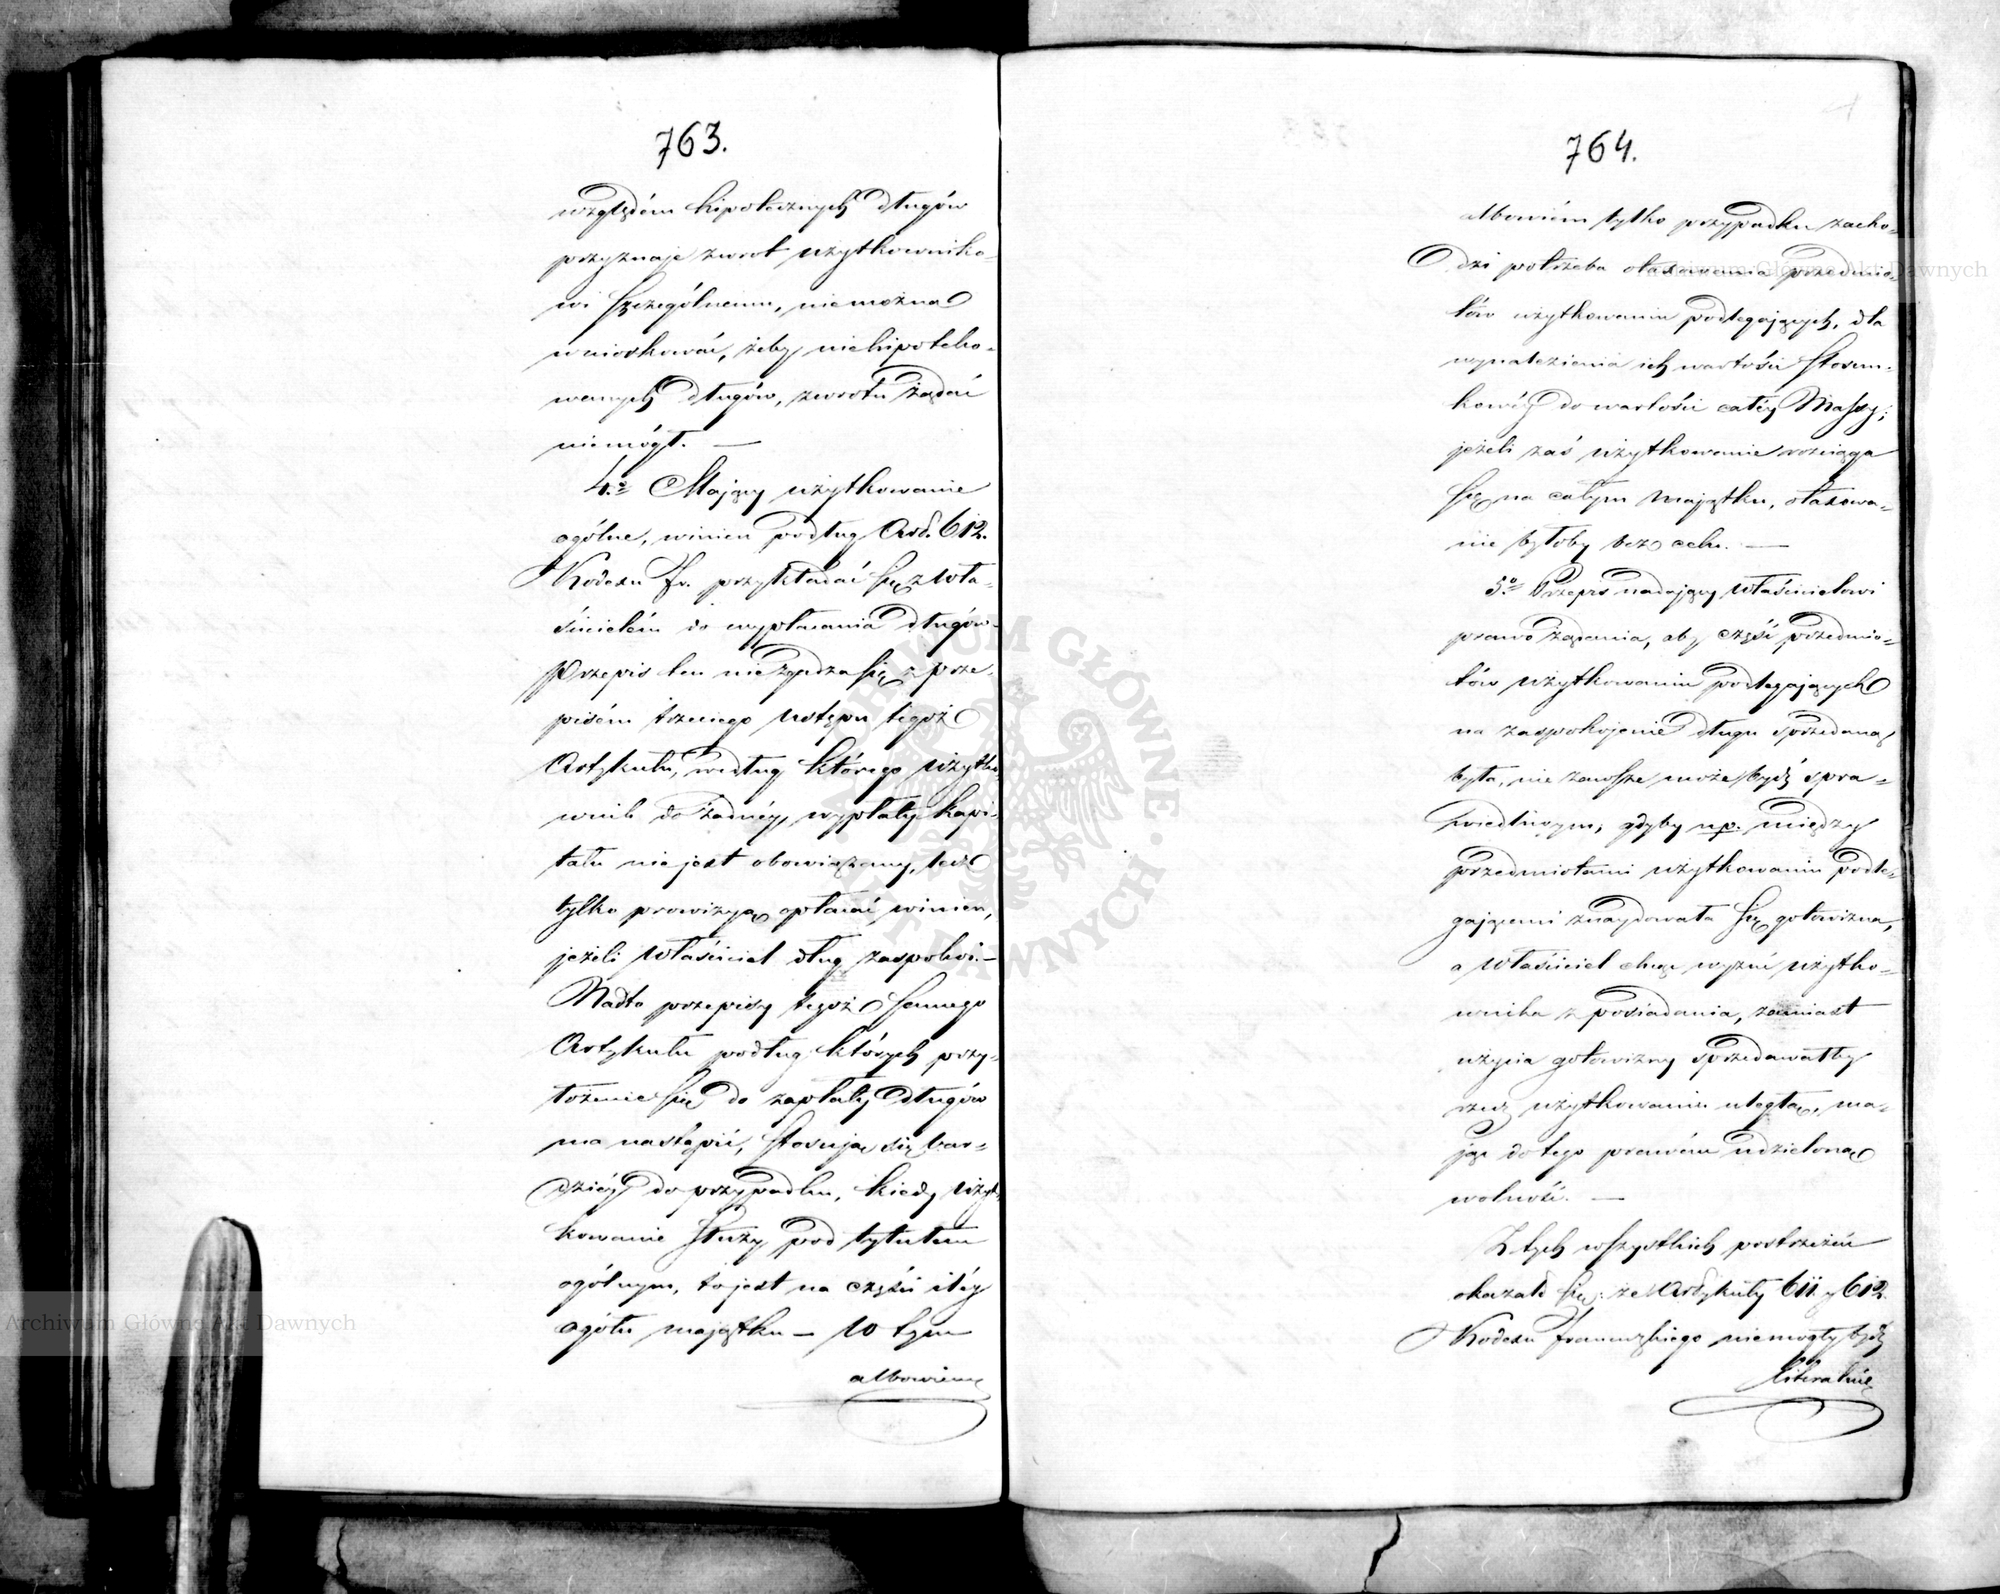 763.
względém hipotecznych długów
przyznaje zwrot użytkowniko-
wi szczególnemu, niemożna
wnioskować, żeby niehipoteko-
wanych długów, zwrotu żądać
niemógł. —
4.o Mający użytkowanie
ogólne, winien podług Art. 612.
Kodexu fr. przykładać się z wła-
ścicielém do wypłacania długów.
Przepis ten niezgadza się z prze-
pisém trzeciego ustępu tegoż
Artykułu, według którego użytko
wnik do żadnéy wypłaty kapi-
tału nie jest obowiązany, lecz
tylko prowizyą opłacać winien,
jeżeli właściciel dług zaspokoi. —
Nadto przepisy tegoż samego
Artykułu podług których przy-
łożenie się do zapłaty długów
ma nastąpić, stosują się bar-
dziéy do przypadku, kiedy użyt-
kowanie służy pod tytułem
ogólnym, to jest na części iléy
ogółu majątku — w tym
albowiem
764.
albowiém tylko przypadku zacho-
dzi potrzeba otaxowania przedmio-
tów użytkowaniu podlegających, dla
wynalezienia ich wartości stosun-
kowéy do wartości całéy Massy;
jeżeli zaś użytkowanie rozciąga
się na całym majątku, otaxowa-
nie byłoby bez celu. —
5.o Przepis nadający właścicielowi
prawo żądania, aby część przedmio-
tów użytkowaniu podlegających
na zaspokojenie długu sprzedaną
była, nie zawsze może bydź spra-
wiedliwym; gdyby np. między
przedmiotami użytkowaniu podle-
gającemi znaydowała się gotowizna,
a właściciel chcąc wyzuć użytko-
wnika z posiadania, zamiast
użycia gotowizny sprzedawałby
rzecz użytkowaniu uległą, ma-
jąc do tego prawém udzieloną
wolność. —
Z tych wszystkich postrzeżeń
okazało się; że Artykuły 611 y 612.
Kodexu francuzkiego niemogły bydź
literalnie
ARCHIWUM GŁÓWNE AKT DAWNYCH
Archiwum Główne Akt Dawnych
Archiwum Główne Akt Dawnych